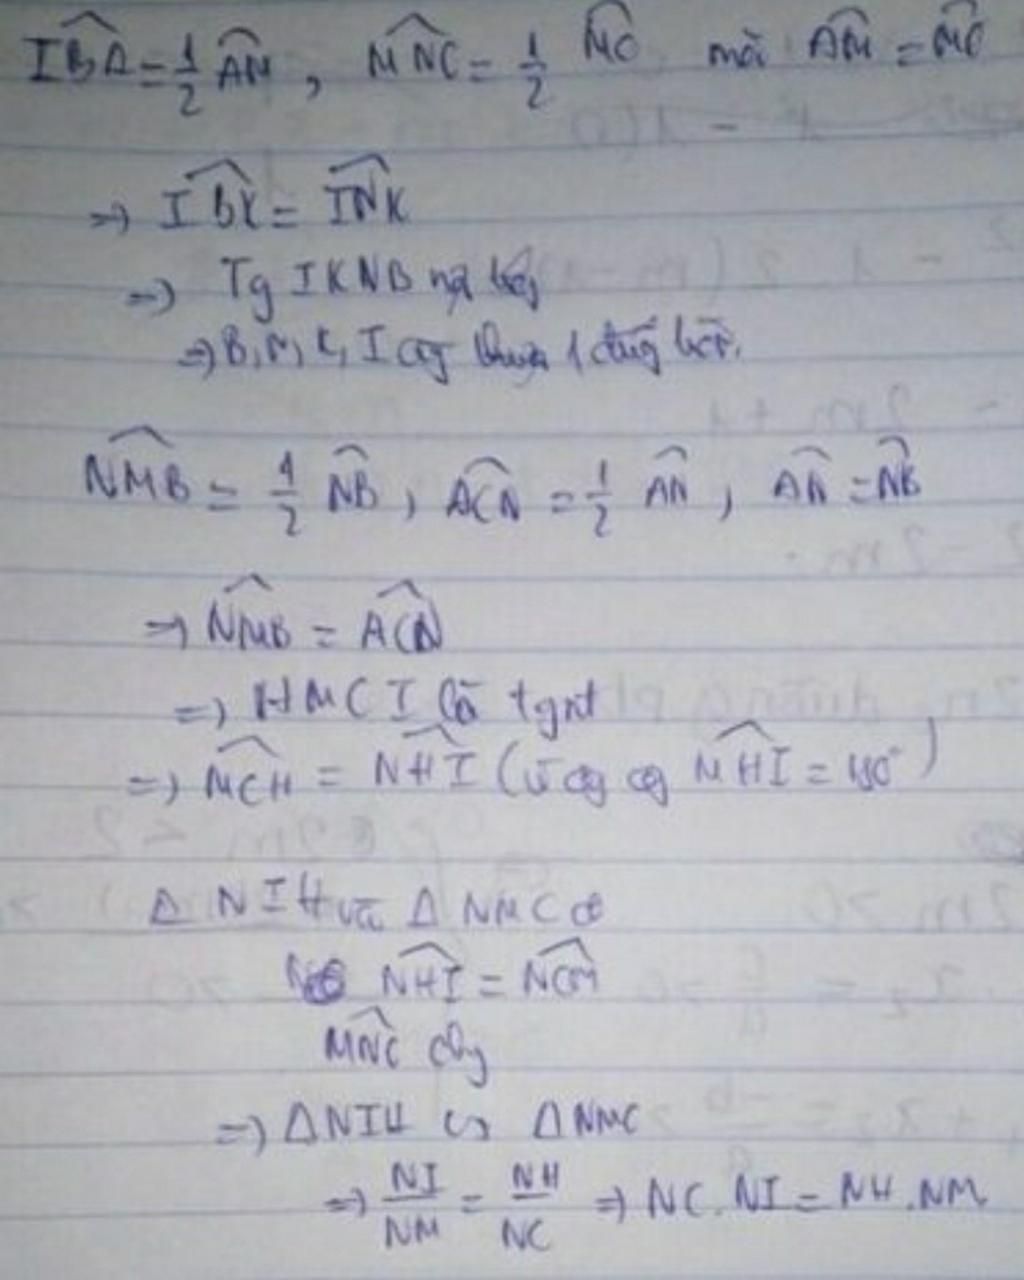 IBA = 1/2 AM, MNC = 1/2 MC mà AM = MC
=> IBK = INK
=> Tg IKNB nội tiếp
=> B, N, K, I cùng thuộc 1 đường tròn.
NMB = 1/2 NB, ACN = 1/2 AN, AN = NB
=> NMB = ACN
=> HMCI là tgnt
=> MCH = NHI (vì cùng cộng MHI = 180°)
Δ NIH và Δ NMC có
NHI = NCM
MNC chung
=> ΔNIH ∽ ΔNMC
=> NI/NM = NH/NC => NC.NI = NH.NM